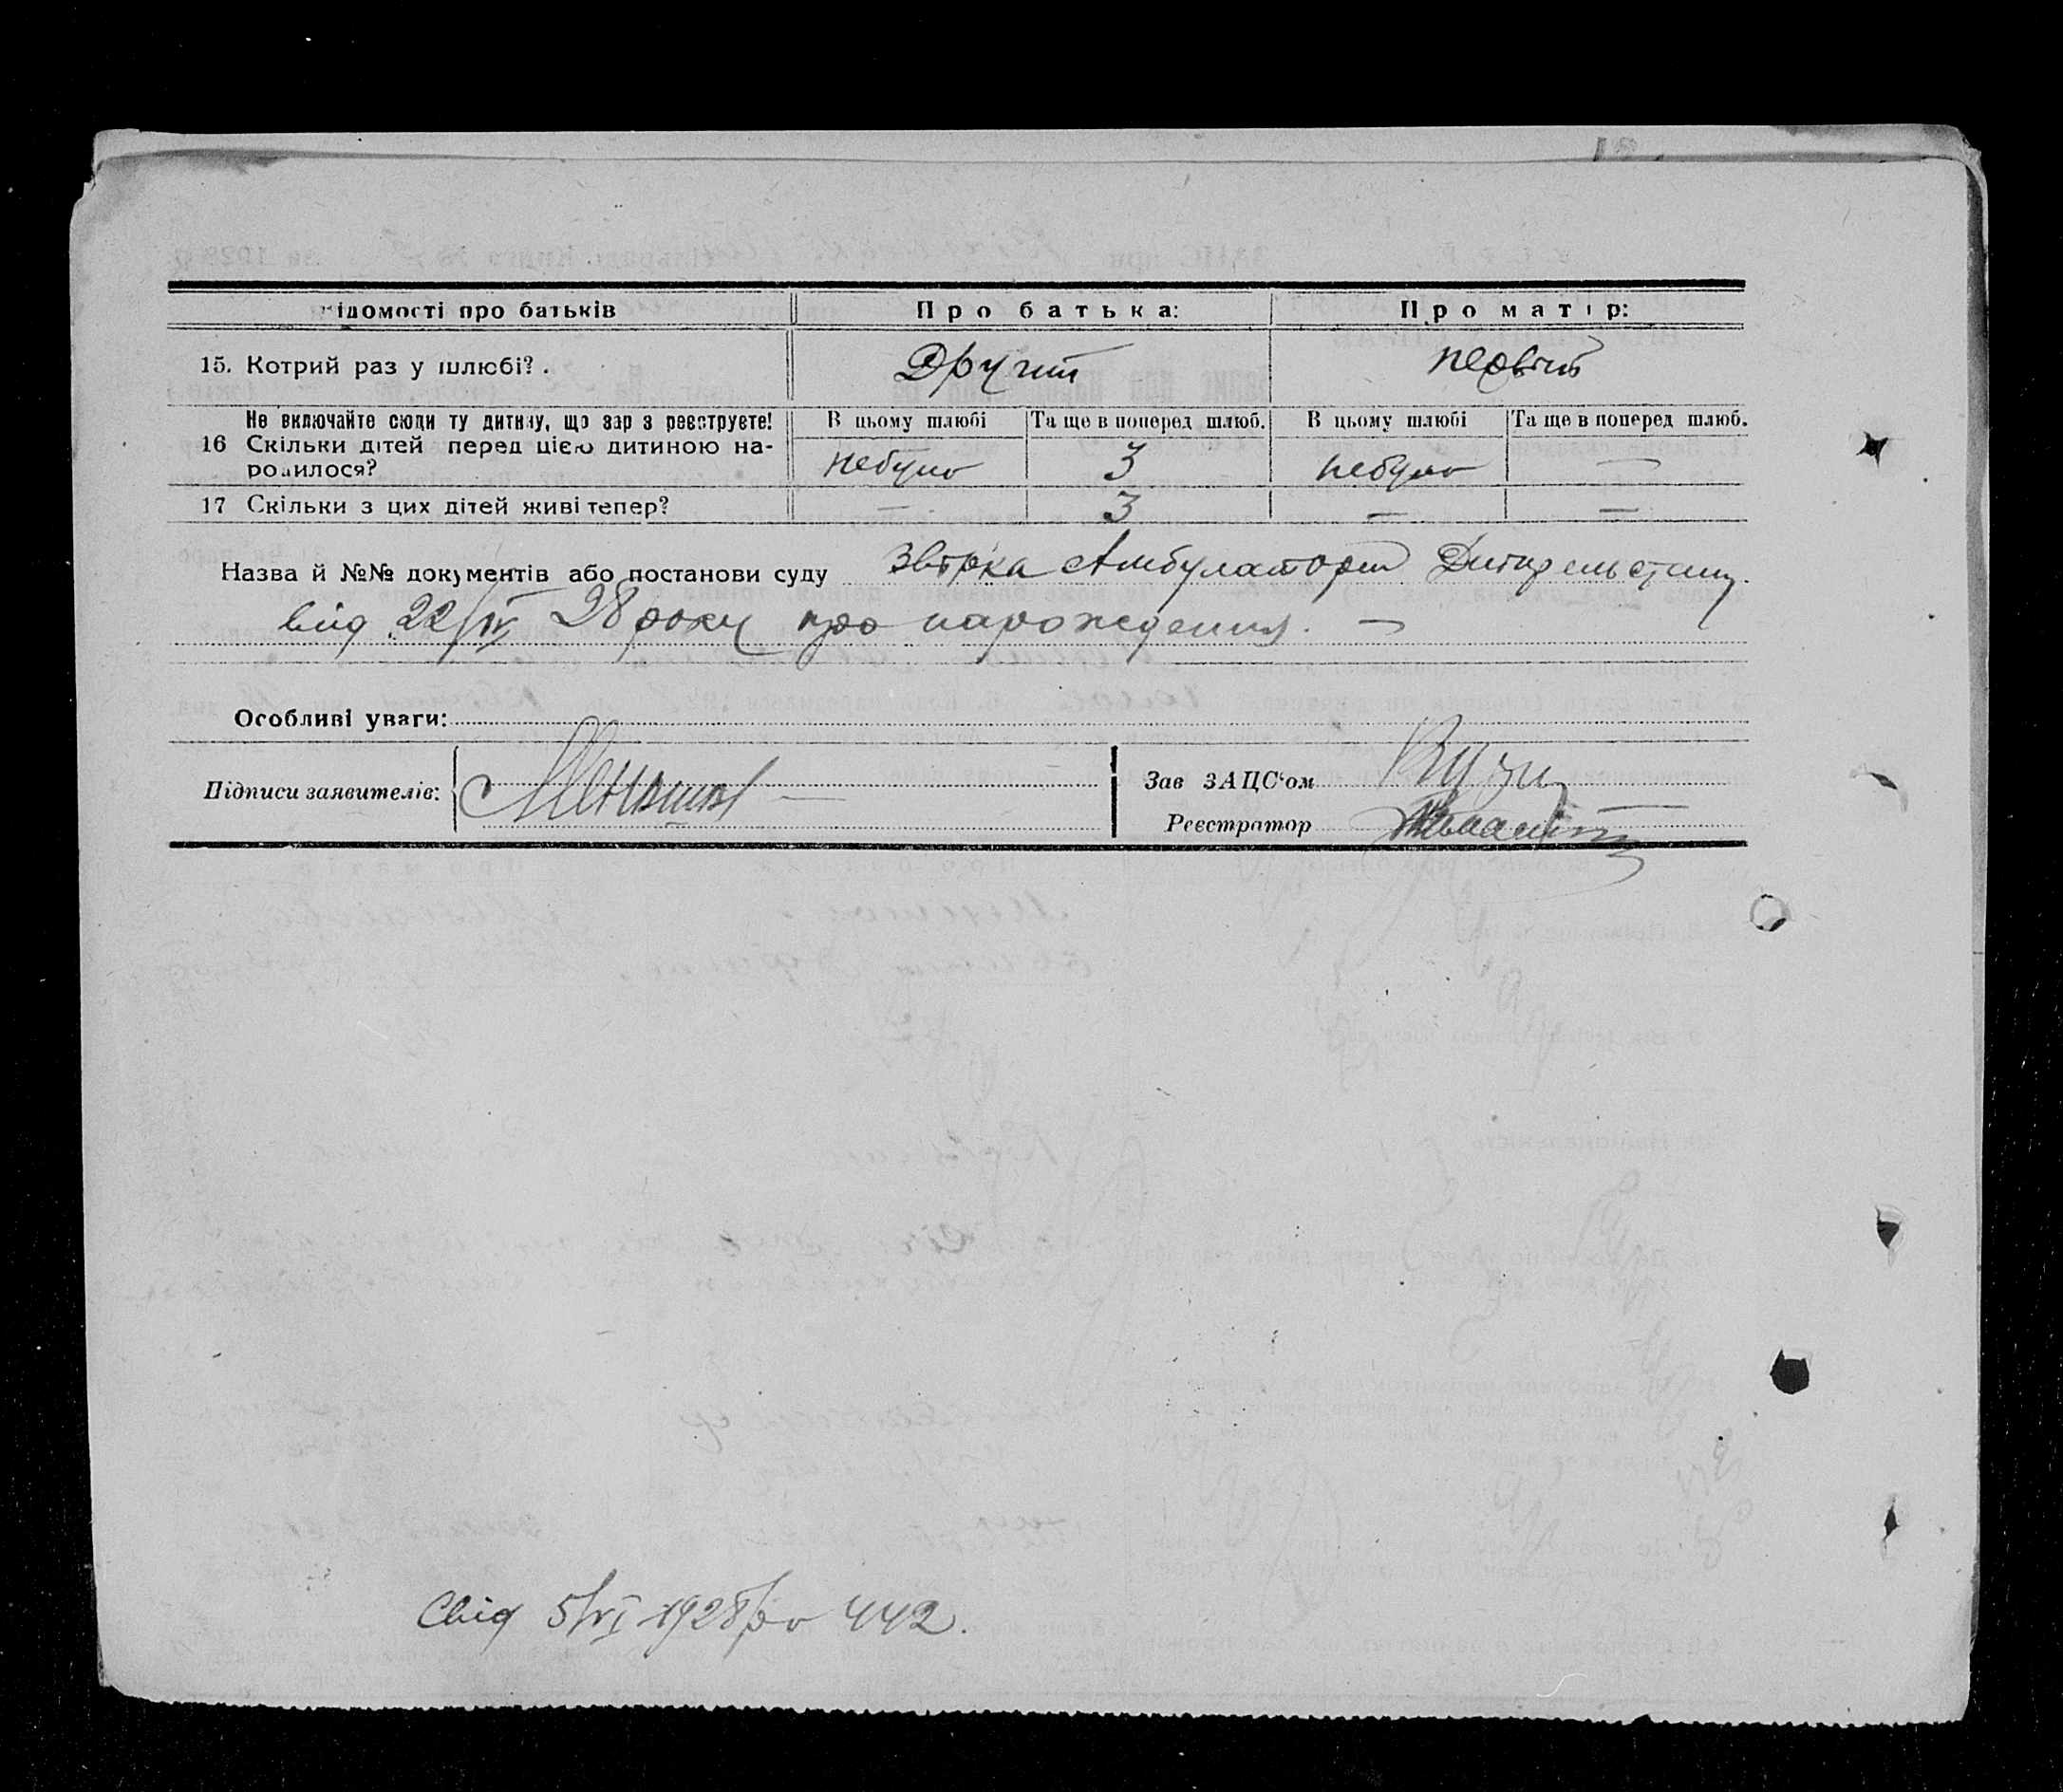 ідомості про батьків Про батька: Про матір:
15. Котрий раз у шлюбі? . Другий первий
Не включайте сюди ту дитину, що зар з реєструєте! В цьому шлюбі Та ще в поперед шлюб. В цьому шлюбі Та ще в поперед шлюб.
16 Скільки дітей перед цією дитиною на-
родилося? небуло 3 небуло —
17 Скільки з цих дітей живі тепер? — 3 — —
Назва й №№ документів або постанови суду Амбулаторії
від 22/IV 28 року про народження. —
Особливі уваги:
Підписи заявителів:
Зав ЗАЦС'ом
Реєстратор
Свід 5/VI 1928 442.